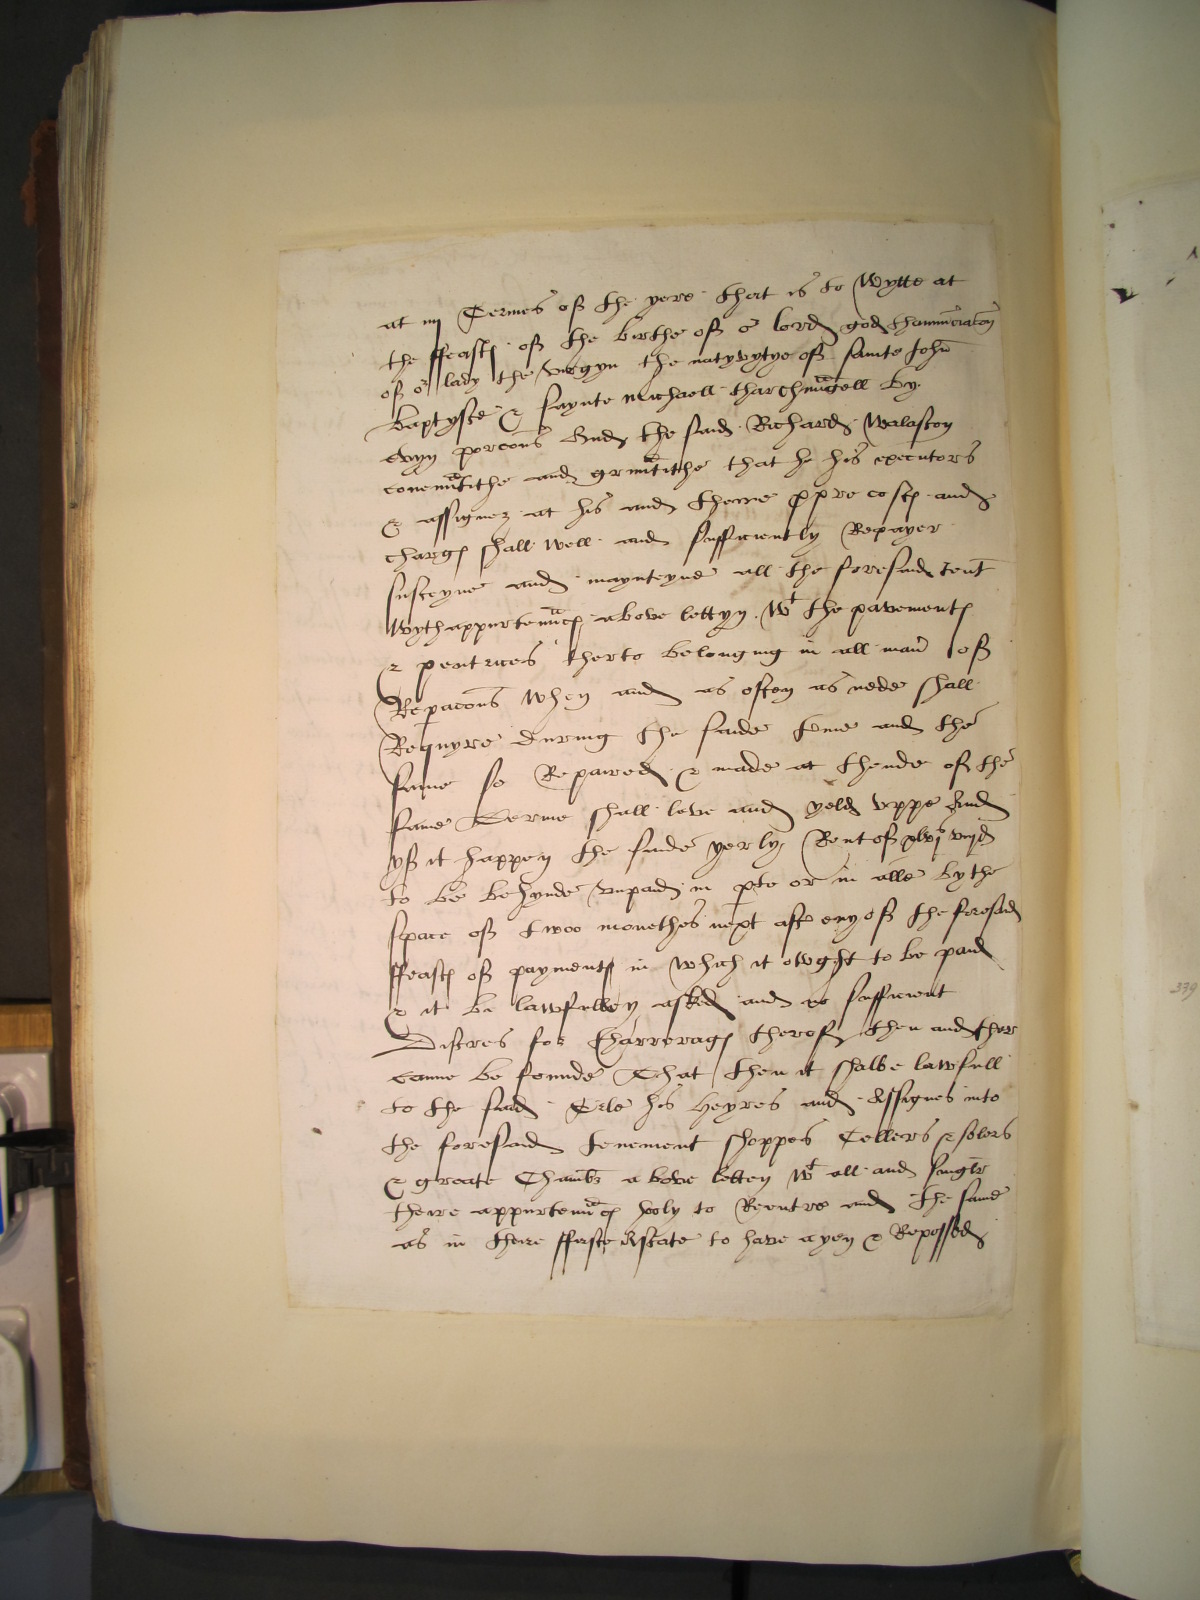 at iiij Termes off the yere that is to Wytte at
the ffeastꝭ off the birthe off oʳ lord god thannunciacon
off oʳ lady the virgyn the natyvytye off sainte John
baptyste & saynte michaell tharchaungell by
evyn porcons And the said Richard Walaston
covenntithe and grauntithe that he his executors
& assignez at his and theire ppre costꝭ and
chargꝭ shall well and sufficiently Repayer
susteyne and maynteyne all the foresaid tent
Wyth appurtenncꝭ above lettyn Wᵗ the pavementꝭ
& pentices therto belonging in all man off
Repacons When and as often as nede shall
Requyre during the saide terme and the
same so Repaired & made at thende off the
same Terme shall leve and yeld uppe And
yff it happen the saide yerly Rent off viijd
to be behynde unpaid in pte or in alle by the
space off twoo monethes next aft eny off the foresaid
ffeastꝭ off paymentꝭ in which it owght to be paid
& it be lawfulley asked and no sufficient
Distres for tharreragꝭ theroff then and ther
canne be founde That then it shalbe lawfull
to the said his heyres and Assignes into
the foresaid tenement shoppes Cellers & solers
& greate Chambʳ above letten Wᵗ all and singler
theire appurtenncꝭ holy to Reentre and the same
as in theire ffirste Astate to have ayen & Reposseds